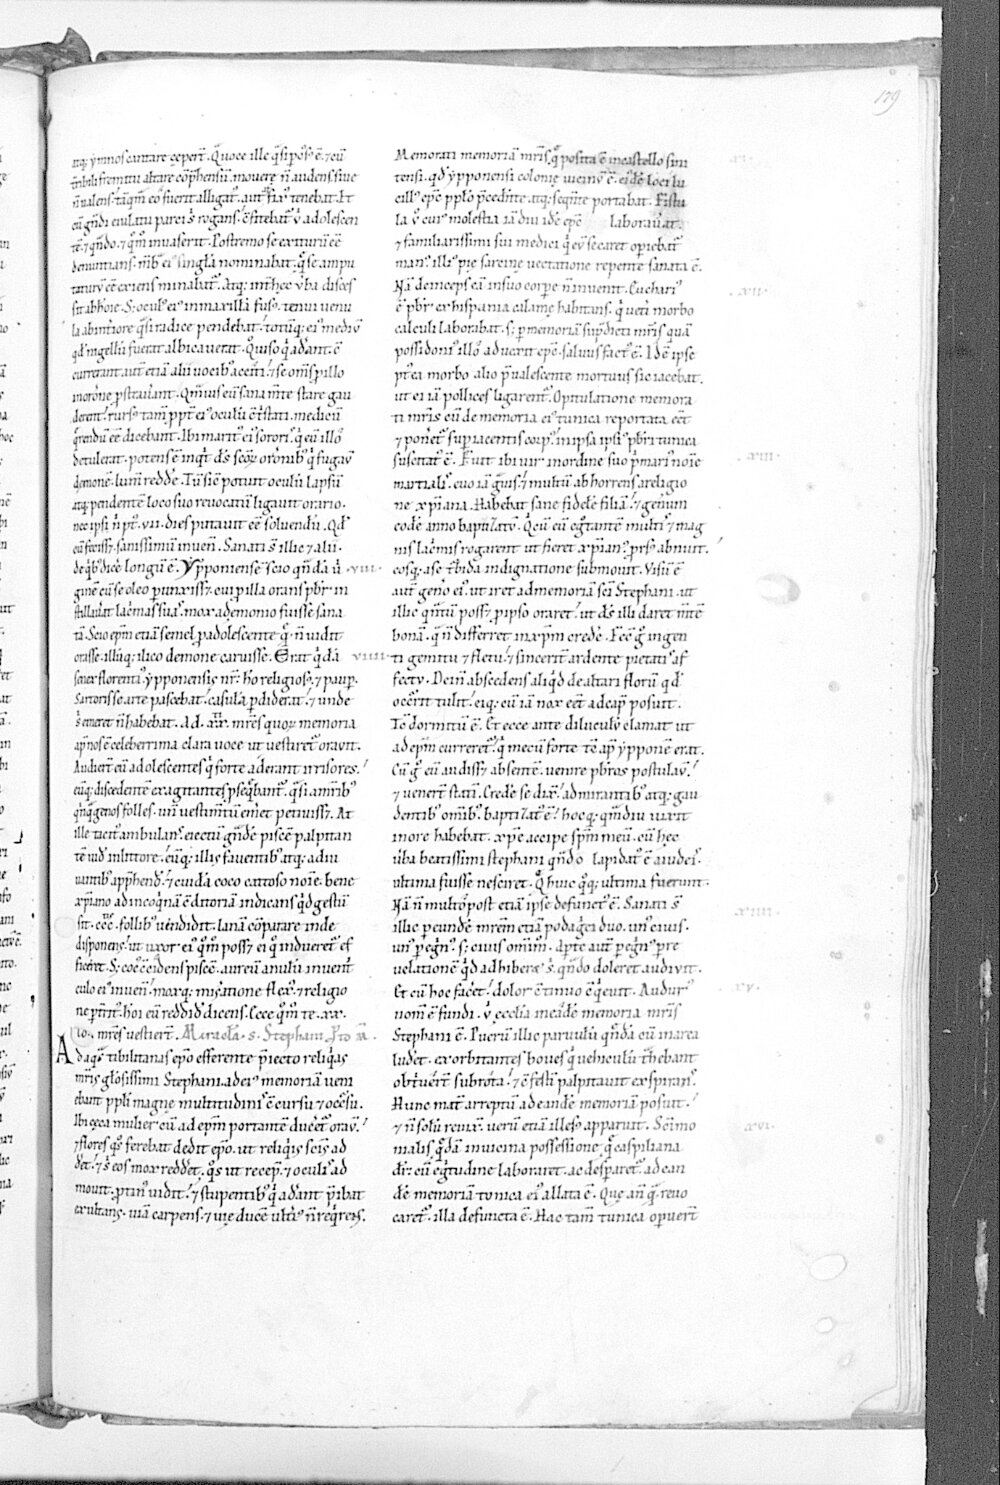 179
atq; ymnos cantare cepert̄. Qͣ uoce ille q̄si ꝑcuss᷒ ē. ⁊ cū
tr̄ribili fremitu altare cōp̄hensū. mouere n̄ audens siue
n̄ ualens. tāqm̄ eo fuerit alligat᷒. aut fix᷒ tenebat. Et
cū gn̄di eiulatu parci s᷒ rogans. cōfitebat᷒ ů adolescen
tē ⁊ qn̄do. ⁊ qm̄ inuaserit. Postremo se exiturū eē
denuntians. mēb̄ ei᷒ singla nominabat. q̄ se ampu
taturū eē exiens minabat᷒. Atq; int̄ hec ůba disces
sit ab hoīe. S; ocul᷒ ei᷒ in maxillā fus᷒. tenui uenu
la ab int̄iore q̄si radice pendebat. totūq; ei᷒ mediū
qd̄ nigellū fuerat albicauerat. Quiso q̇ adant. c̄
currerant aut̄ etiā alii uocib᷒ acciti. ⁊ se om̄s ꝓ illo
in orōne ꝓstrauant. Qm̄uis eū sana m̄te stare gau
derent. rurs᷒ tam̄ ꝓpt̄ ei᷒ oculū c̄tristati. medicū
q̄rendū eē dicebant. Ibi marit᷒ ei᷒ soror᷒. q̇ eū illo
detulerat. potens ē inqt̄ ds̄ sc̄oꝝ orōnib᷒ q̇ fugau
demonē. lum̄ reddē. Tū sic̄ potuit oculū lapsū
atq; pendentē loco suo reuocatū ligauit orario.
nec ipsi n̄ pt᷒. vii. dies putauit eē soluendū. Qd̄
cū fecisset. sanissimū inuen̄. Sanati s̄ illic ⁊ alii.
de qb᷒ dic̄e longū ē. Ypponiensē scio qn̄dā ů viii
ginē cū se oleo punxisset. cui ꝓ illa orans pb̄r in
stillauat lac̄mas suas. mox a demonio fuisse sana
tā. Scio ep̄m etiā semel ꝓ adolescente q̄ n̄ uidit
orasse. illūq; ilico demone caruisse. Erat q̇dā viiii
senex florenti᷒ ypponensis nr̄. hō religios᷒. ⁊ paup.
Sartoris se arte pascebat. casulā ꝑdiderat. ⁊ unde
s᷒ emeret n̄ habebat. Ad. xx. mr̄es quoꝝ memoria
ap̄ nos ē celeberrima clara uoce ut uestiret᷒ orauit.
Audiert̄ eū adolescentes q̇ forte aderant irrisores.
eūq; discedente exagitantes ꝑseq̄bant᷒. q̄si a mr̄ib᷒
qn̄qgenos folles. un̄ uestim̄tū em̄et petiuisset. At
ille tacit᷒ ambulans. eiectū gn̄dē piscē palpitan
tē uid̄ in littore. eūq; illis fauentib᷒ atq; adiu
uantib᷒ app̄hend̄. ⁊ cuidā coco cattoso noīe. bene
xp̄iano ad incoq̇nā c̄ditoriā indicans q̇d gestū
sit. ccc. follib᷒ uendidit. lanā cōparare inde
disponens. ut uxor ei᷒ qm̄ posset ei q̊ indueret᷒ ef
ficeret. S; coc᷒ c̄cidens piscē. aureū anulū inuent̄
culo ei᷒ inuen̄. moxq; miseratione flex᷒. ⁊ religio
ne ꝑt̄rit᷒. hōi eū reddid̄ dicens. Ecce qm̄ te. xx.
mr̄es uestiert̄. Miracl̄a. s. Stephani
Ad aqs᷒ tibilitanas epō efferente p̄iecto reliq̇as
mr̄is glōsissimi Stephani. ad ei᷒ memoriā ueni
ebant ppl̄i magne multitudinis c̄cursu ⁊ occ̄su.
Ibi ceca mulier eū ad ep̄m portantē ducēt᷒ orau.
⁊ flores q̊s ferebat dedit epō. ut reliq̇is sc̄is ad
det. ⁊ s᷒ eos mox reddet. q̊s ut recep̄. ⁊ oculis ad
mouit. ꝓtin᷒ uidit. ⁊ stupentib᷒ q̇ adant p̄ibat
exultans. uiā carpens. ⁊ uie ducē ult᷒i᷒ n̄ req̇rens.
Memorati memoriā mr̄is. q̄ posita ē in castello sini
tensi. qd̄ ypponensi colonie uicinū ē. ei᷒dē loci lu
cill᷒ ep̄c ppl̄o p̄cedente. atq; seqn̄te portabat. Fistu
la ů cui᷒ molestia iā diu idē ep̄c laborauat.
⁊ familiarissimi sui medici q̇ eū secaret opiebat᷒
man᷒. illi᷒ pie sarcine uectatione repente sanata ē.
Nā deinceps eā in suo corpe n̄ inuenit. Euchari᷒ xii
ē pb̄r ex hispania calame habitans. q̇ ueti morbo
calculi laborabat. s; ꝑ memoriā sup̄dicti mr̄is quā
possidoni᷒ illo aduexit ep̄c. saluus fact᷒ ē. Idē ipse
pt᷒ ea morbo alio p̄ualescente mortuus sic iacebat.
ut ei iā pollices ligarent᷒. Opitulatione memora
ti mr̄is cū de memoria ei᷒ tunica reportata eēt
⁊ ponet᷒ sup iacentis corp᷒. in ipsa ipsi᷒ pb̄ri tunica
suscitat᷒ ē. Fuit ibi uir in ordine suo p̄mari᷒ noīe xiii
martialis. euo iā gͣuis. ⁊ multū ab horrens a religio
ne xp̄iana. Habebat sane fidelē filiā. ⁊ gen̄um
eodē anno baptizatū. Qͥ cū eū eg̊tantē multis ⁊ mag
nis lac̄mis rogarent ut fieret xp̄ian᷒. prs᷒ abnuit.
eosq; a se t᷒bida indignatione submouit. Visū ē
aut̄ geno ei᷒. ut iret ad memoria sc̄i Stephani. ut
illic qm̄tū posset ꝓ ipso oraret. ut ds̄ illi daret m̄tē
bonā. q̄ n̄ differret in xp̄m credē. Fec̄ g̊ ingen
ti gemitu ⁊ fletu. ⁊ sincerit̄ ardente pietatis af
fectu. Dein̄ abscedens aliq̇d de altari florū qd̄
occ̄rit tulit. eiq; cū iā nox eēt ad cap̄ posuit.
Tc̄ dormitū ē. Et ecce ante diluculū clamat ut
ad ep̄m curreret᷒. q̇ mecū forte tc̄ ap̄ ypponē erat.
Cū g̊ eū audisset absentē. uenire pb̄ros postulau.
⁊ uenert̄ statī. Credē se dix̄. admirantib᷒ atq; gau
dentib᷒ omīb᷒. baptizat᷒ ē. hoc q; qm̄diu uixit
in ore habebat. xp̄e accipe sp̄m meū. cū hec
ůba beatissimi stephani qn̄do lapidat᷒ ē a iudeis.
ultima fuisse nesciret. Q̄ huic q̊q; ultima fuerunt.
Nā n̄ multo post etiā ipse defunct᷒ ē. Sanati s̄ xiiii
illic ꝑ eundē mr̄em etiā podagci duo. un᷒ ciuis.
un᷒ pegn᷒. s; ciuis omīm. Apte aut̄ pegn᷒ ꝑ re
uelationē q̇d adhibere s᷒. qn̄do doleret audiuit.
Et cū hoc facet. dolor c̄tinuo c̄q̇euit. Audur᷒ xv
nom̄ ē fundi. ů ecclīa in eadē memoria mr̄is
Stephani ē. Puerū illic paruulū qn̄dā cū in area
ludet. exorbitantes boues q̇ uehiculū t̄hebant
obt̄uert̄ sub rota. ⁊ c̄festī palpitauit exspirans.
Hunc mat᷒ arreptū ad eandē memoriā posuit.
⁊ n̄ solū reuix. uerū etiā illes᷒ apparuit. Sc̄imo xvi
nialis q̇dā in uicina possessione q̄ caspiliana
dr̄. cū egtudine laboraret. ac despararet᷒ ad ean
dē memoriā tonica ei᷒ allata ē. Que an̄ q̄ reuo
caret᷒. illa defuncta ē. Hac tam̄ tunica opuert̄